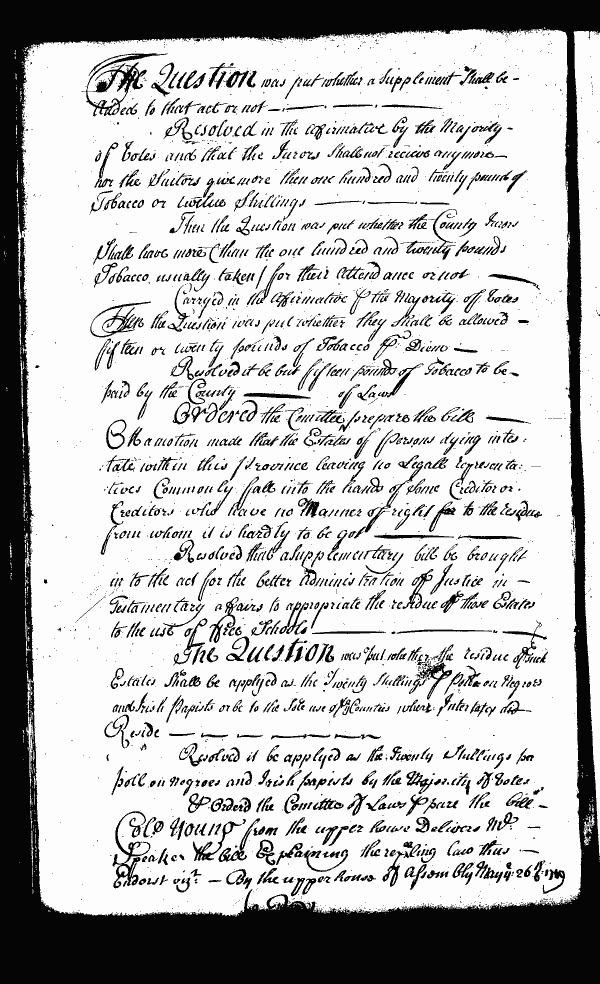 The Question was put whether a Supplement Shall be
Added to that act or not
Resolved in the affirmative by the Majority
of Votes and that the Jurors Shall not recieve any more
nor the Suitors give more then one hundred and twenty pound of
Tobacco or twelve Shillings
Then the Question was put whether the County Jurors
Shall have more (than the one hundred and twenty pounds
Tobacco usually taken) for their Attendance or not
Carryed in the Affirmative P the Majority of Votes
Then the Question was put whether they Shall be allowed
fifteen or twenty pounds of Tobacco P Diem
Resolved it be but fifteen pounds of Tobacco to be
paid by the County of Laws
Ordered the Comittee prepare the bill
On a motion made that the Estates of persons dying intes:
tate within this Province leaving no Legall representa:
tives Commonly fall into the hands of Some Creditor or
Creditors who have no Manner of right to the residue
from whom it is hardly to be got
Resolved that a Supplementary bill be brought
in to the act for the better administration of Justice in
Testamentary affairs to appropriate the residue of those Estates
to the use of ffree Schools
The Question was put whether the residue of Such
Estates Shall be applyed as the Twenty Shillings P on Negroes
and Irish Papists or be to the Sole use of the Counties where Intestates did
Reside
Resolved it be applyed as the Twenty Shillings pr
poll on Negroes and Irish papists by the Majority of Votes
& Orderd the Comittee of Laws P pare the bill
Colo Young from the upper house Delivers Mr.
Speaker the bill Explaining the repealing law thus
Endorst vizt. By the upper house of Assembly May ye 26th 1719